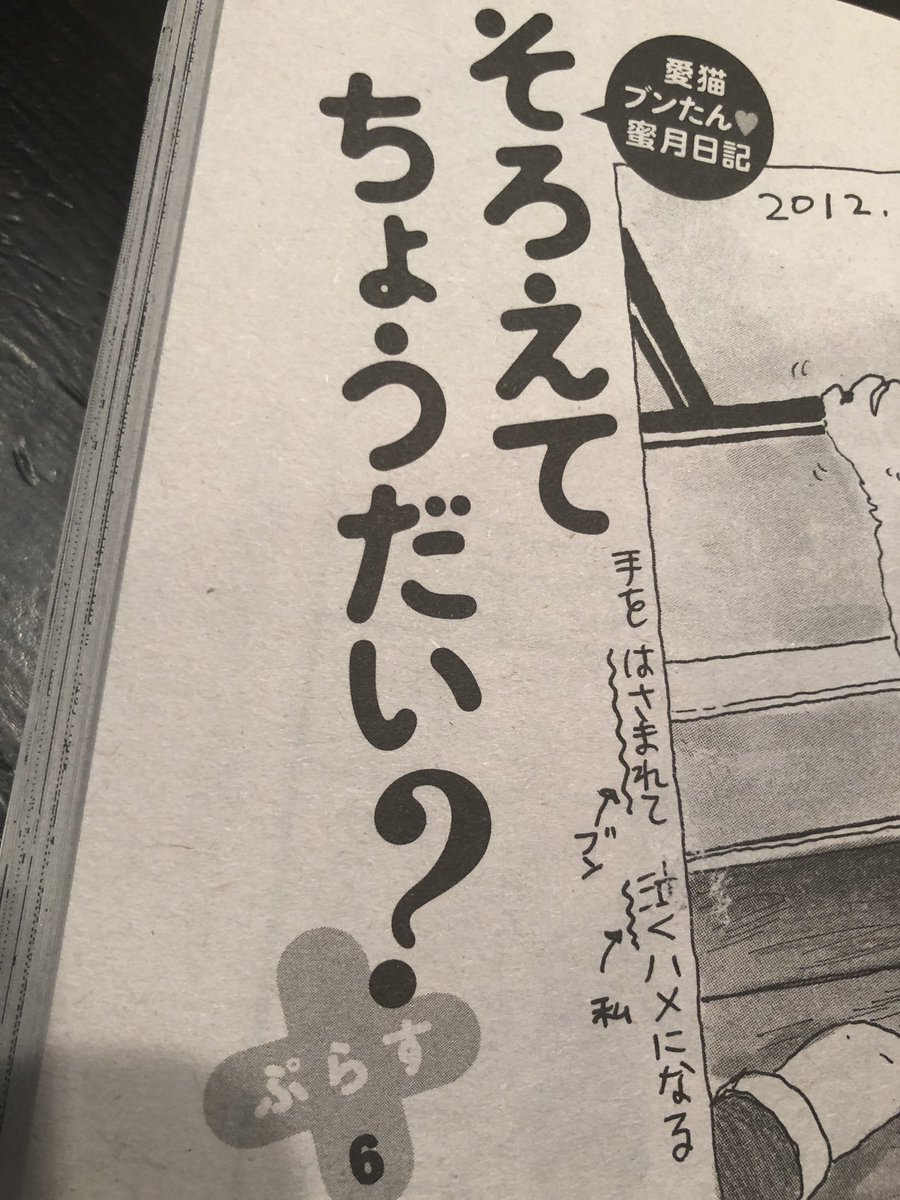 愛猫
ブンたん♥
蜜月日記
そろえて
ちょうだい？
ぷらす
6
2012.
手をはさまれて 泣くハメになる
ブン
私